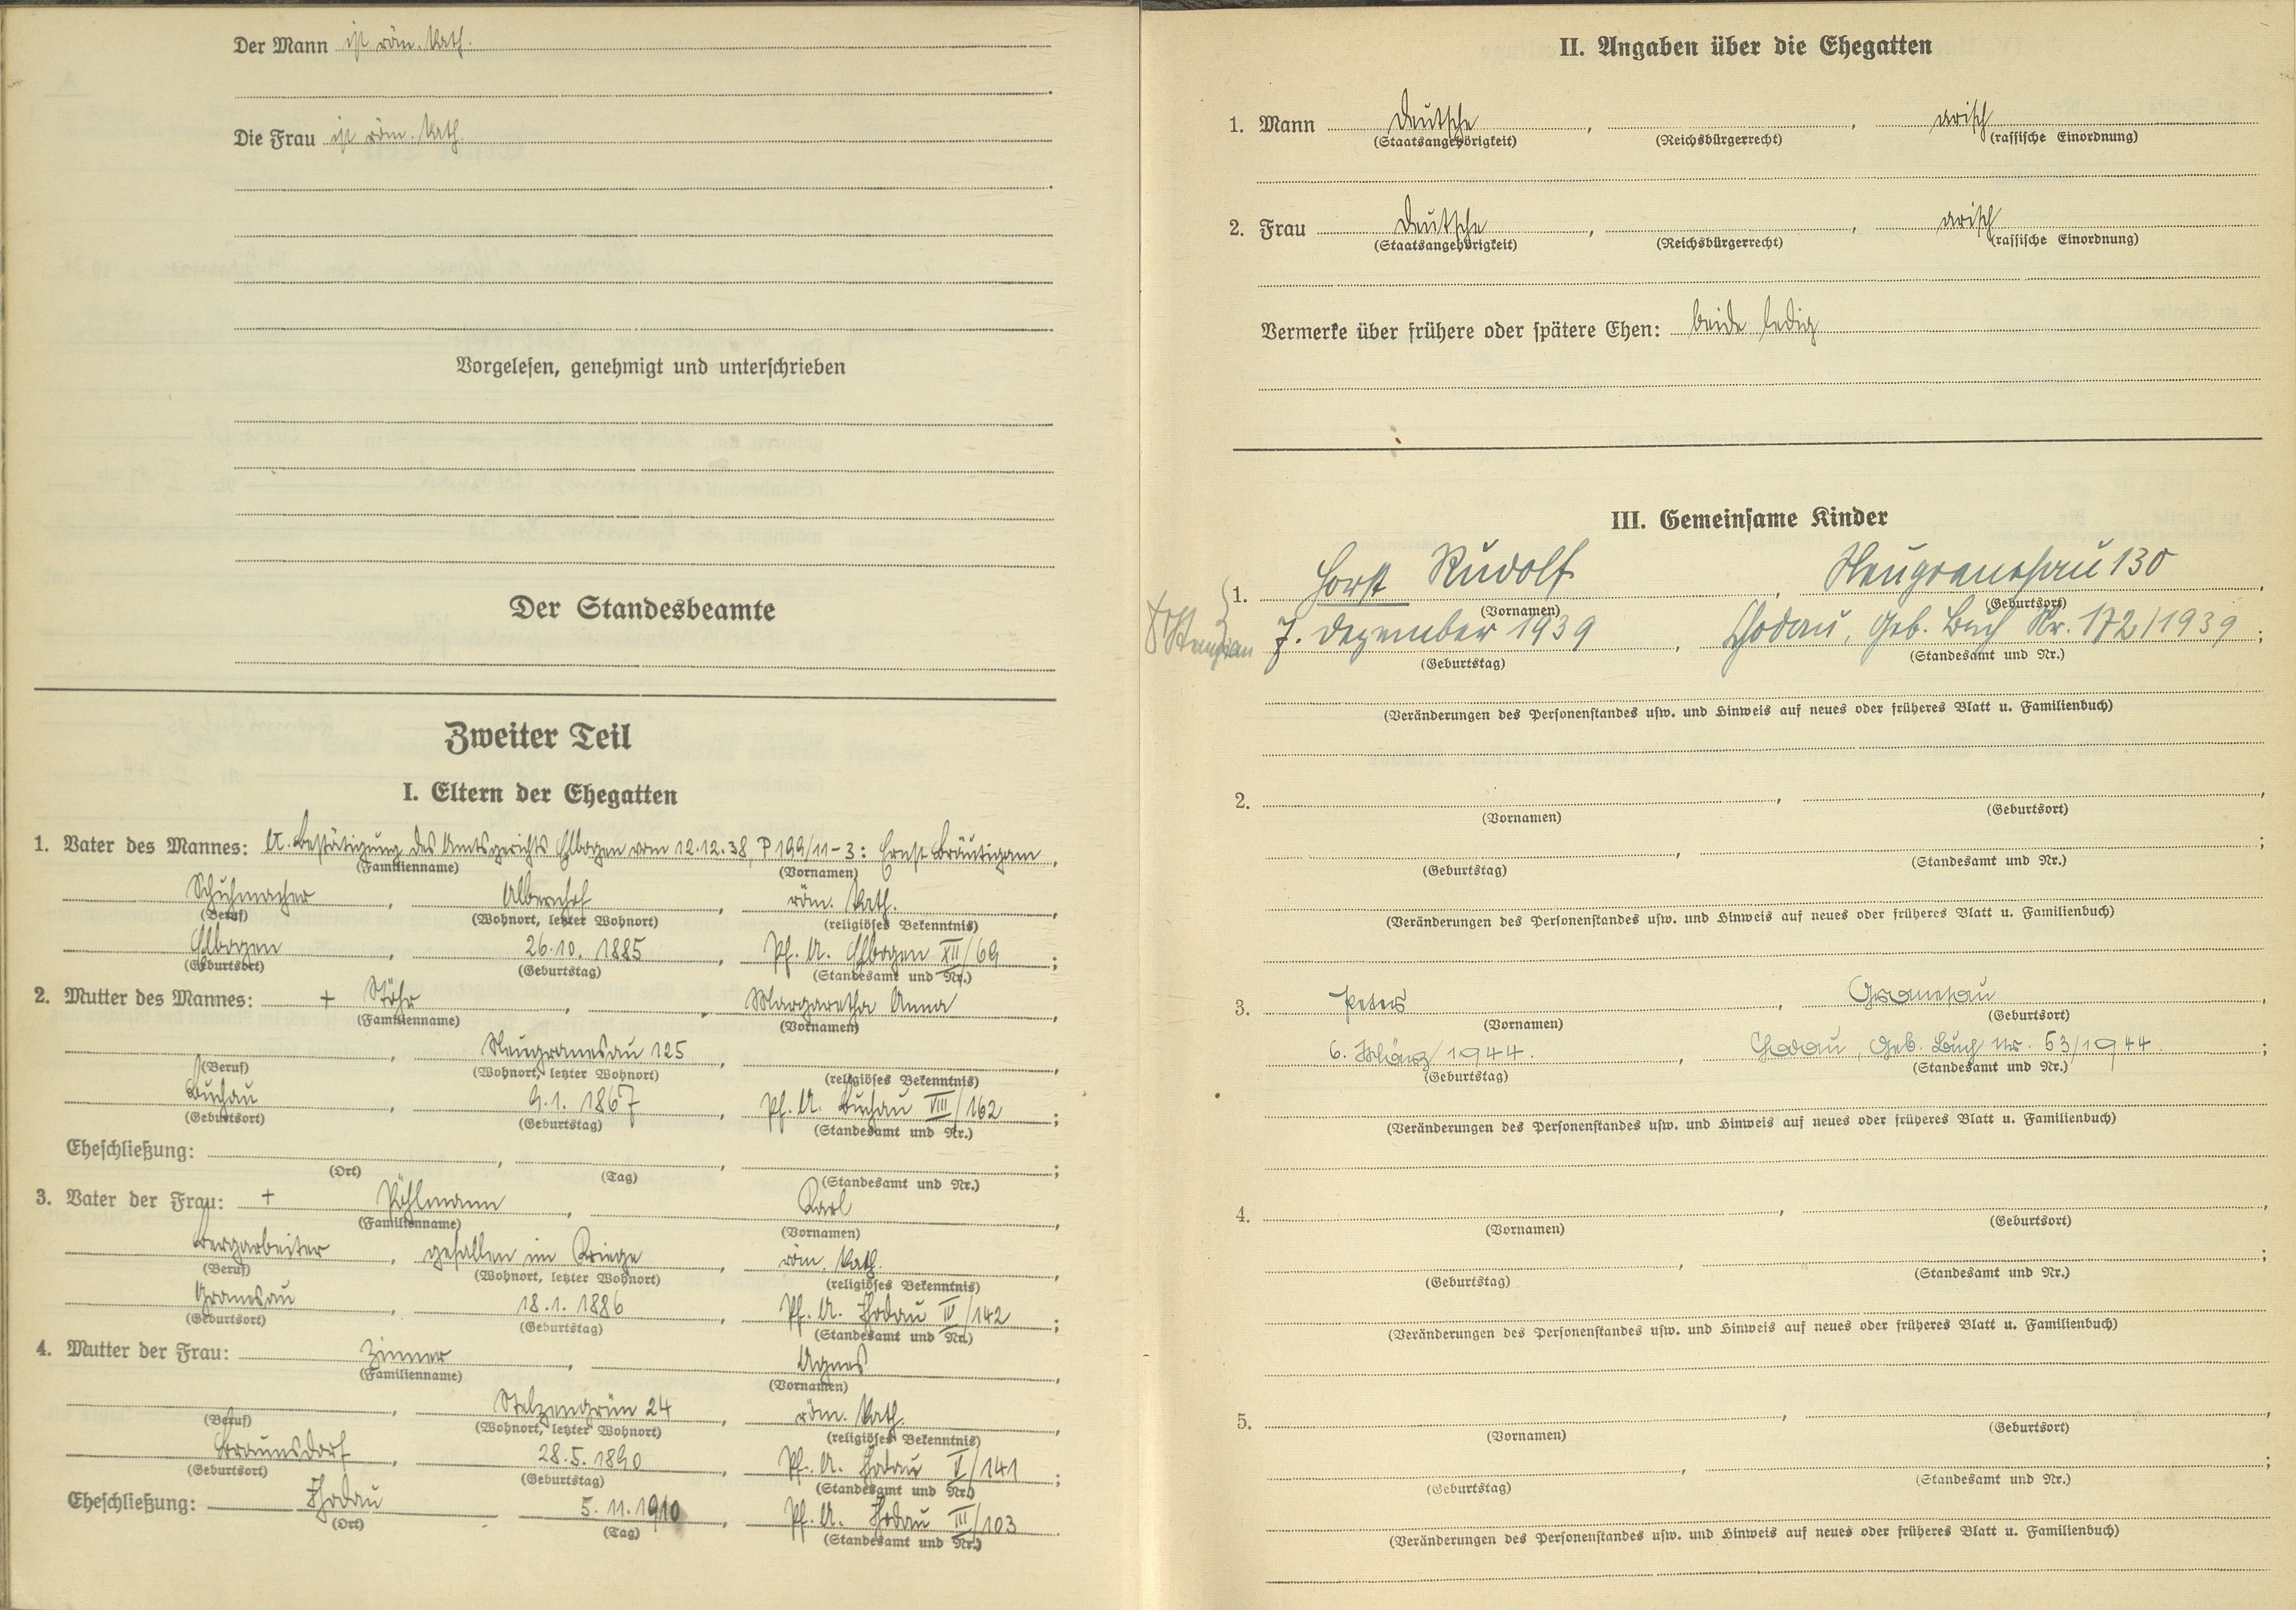 Der Mann ist röm. kath.
Die Frau ist röm. kath.
Vorgelesen, genehmigt und unterschrieben
Der Standesbeamte
Zweiter Teil
I. Eltern der Ehegatten
1. Vater des Mannes: lt. Bestätigung des Amtsgerichts Elbogen vom 12.12.38, P 199/11-3: Ernst Bräutigam,
(Familienname) (Vornamen)
Schuhmacher, Albernhof, röm. kath.,
(Beruf) (Wohnort, letzter Wohnort) (religiöses Bekenntnis)
Elbogen, 26.10.1885, Pf. A. Elbogen XII/69;
(Geburtsort) (Geburtstag) (Standesamt und Nr.)
2. Mutter des Mannes: + Stöhr, Margaretha Anna,
(Familienname) (Vornamen)
, Neugranesau 125, ,
(Beruf) (Wohnort, letzter Wohnort) (religiöses Bekenntnis)
Buchau, 9.1.1867, Pf. A. Buchau VIII/162;
(Geburtsort) (Geburtstag) (Standesamt und Nr.)
Eheschließung: , , ;
(Ort) (Tag) (Standesamt und Nr.)
3. Vater der Frau: + Pöhlmann, Karl,
(Familienname) (Vornamen)
Bergarbeiter, gefallen im Kriege, röm. kath.,
(Beruf) (Wohnort, letzter Wohnort) (religiöses Bekenntnis)
Granesau, 18.1.1886, Pf. A. Chodau IV/142;
(Geburtsort) (Geburtstag) (Standesamt und Nr.)
4. Mutter der Frau: Zinner, Agnes,
(Familienname) (Vornamen)
, Stelzengrün 24, röm. kath.,
(Beruf) (Wohnort, letzter Wohnort) (religiöses Bekenntnis)
Braunsdorf, 28.5.1890, Pf. A. Chodau V/141;
(Geburtsort) (Geburtstag) (Standesamt und Nr.)
Eheschließung: Chodau 5.11.1910, Pf. A. Chodau III/103
(Ort) (Tag) (Standesamt und Nr.)
II. Angaben über die Ehegatten
1. Mann Deutsche, , arisch
(Staatsangehörigkeit) (Reichsbürgerrecht) (rassische Einordnung)
2. Frau Deutsche, , arisch
(Staatsangehörigkeit) (Reichsbürgerrecht) (rassische Einordnung)
Vermerke über frühere oder spätere Ehen: beide ledig
III. Gemeinsame Kinder
1. Horst Rudolf, Neugranesau 130,
(Vornamen) (Geburtsort)
7. Dezember 1939, Chodau, Geb. Buch Nr. 172/1939;
(Geburtstag) (Standesamt und Nr.)
(Veränderungen des Personenstandes usw. und Hinweis auf neues oder früheres Blatt u. Familienbuch)
2. , ,
(Vornamen) (Geburtsort)
, ;
(Geburtstag) (Standesamt und Nr.)
(Veränderungen des Personenstandes usw. und Hinweis auf neues oder früheres Blatt u. Familienbuch)
3. Peter, Granesau,
(Vornamen) (Geburtsort)
6. März 1944., Chodau, Geb. Buch Nr. 53/1944;
(Geburtstag) (Standesamt und Nr.)
(Veränderungen des Personenstandes usw. und Hinweis auf neues oder früheres Blatt u. Familienbuch)
4. , ,
(Vornamen) (Geburtsort)
, ;
(Geburtstag) (Standesamt und Nr.)
(Veränderungen des Personenstandes usw. und Hinweis auf neues oder früheres Blatt u. Familienbuch)
5. , ,
(Vornamen) (Geburtsort)
, ;
(Geburtstag) (Standesamt und Nr.)
(Veränderungen des Personenstandes usw. und Hinweis auf neues oder früheres Blatt u. Familienbuch)